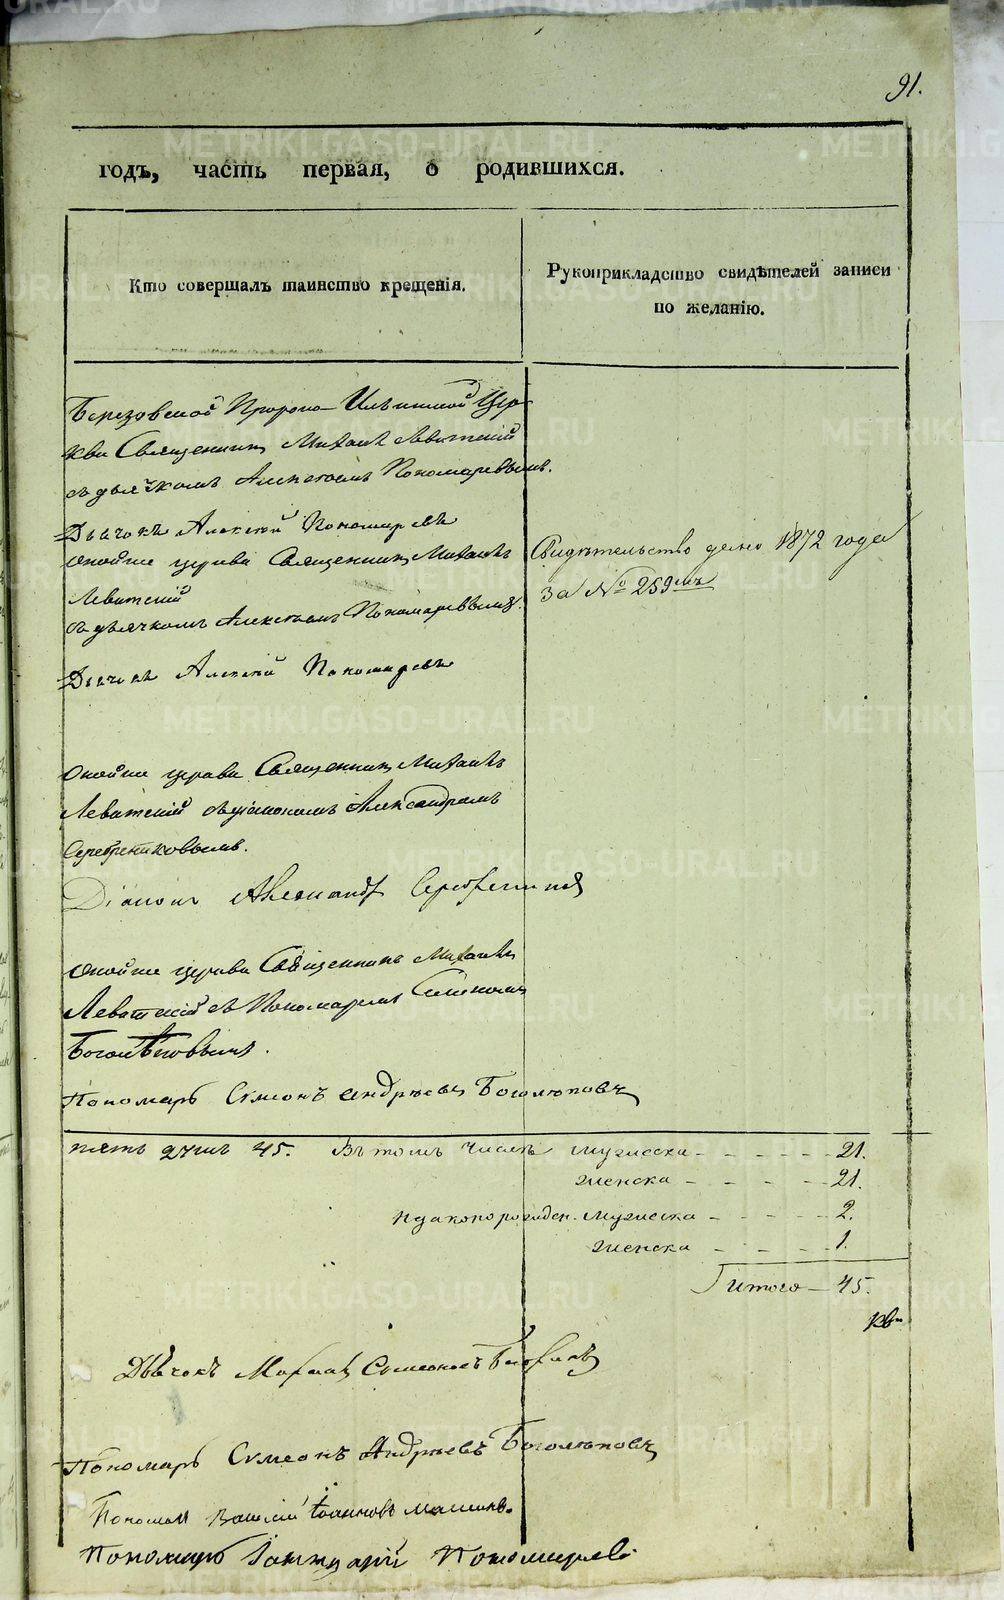 91.
годъ, часть первая, о родившихся.
Кто совершалъ таинство крещенія.
Рукоприкладство свидѣтелей записи
по желанію.
Березовской Пророко-Ильинской Цер-
кви Священникъ Михаилъ Левитскій
съ дьячкомъ Алексѣемъ Пономаревымъ.
Дьячокъ Алексѣй Пономаревъ
Онойже церкви Священникъ Михаилъ
Левитскій
съ дьячкомъ Алексѣемъ Пономаревымъ.
Свидѣтельство дано 1872 года
за № 259мъ
Дьячокъ Алексѣй Пономаревъ
Онойже церкви Священникъ Михаилъ
Левитскій съ діакономъ Александромъ
Серебрениковымъ.
Діаконъ Александръ
Онойже церкви Священникъ Михаилъ
Левитскій съ Пономаремъ Симеономъ
Пономарь Сѵмеонъ Андрѣевъ Боголюповъ
пять душъ 45. Въ томъ числѣ мужеска - - - - - 21.
женска - - - - - 21.
мужеска - - - - 2.
женска - - - - 1.
Итого - 45.
Дьячокъ
Пономарь Сѵмеонъ Андрѣевъ Боголюповъ
Іоанновъ
Пономарь Пономаревъ
METRIKI.GASO-URAL.RU